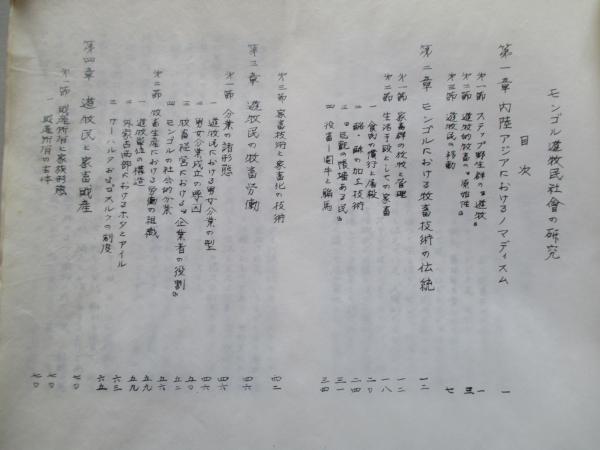 モンゴル遊牧民社會の研究
目次
第一章 内陸アジアにおけるノマディスム 一
第一節 ステップ野生群の〝遊牧〟 一
第二節 遊牧的牧畜の〝原始性〟 三
第三節 遊牧民の移動 七
第二章 モンゴルにおける牧畜技術の伝統 一二
第一節 家畜群の放牧と管理 一二
第二節 生活手段としての家畜 一八
一 食肉の慣行と屠殺 二〇
二 酪・酥の加工技術 二四
三 〝毛氈の帳墻ある民〟 三一
四 役畜―閹牛と騸馬 三四
第三節 家畜技術と家畜化の技術 四二
第三章 遊牧民の牧畜労働 四六
第一節 分業の諸形態 四六
一 遊牧民における男女分業の型 四六
二 男女分業成立の要因 五〇
三 牧畜経営における〝企業者の役割〟 五二
四 モンゴルの社会的分業 五六
第二節 牧畜生産における労働の組織 五九
一 遊牧単位の構造 五九
二 外蒙古西部におけるホタとアイル 六三
三 サーハルタおよびスルクの制度 六五
第四章 遊牧民と家畜財産 七〇
第一節 財産所有と家族形態 七〇
一 財産所有の主体 七〇